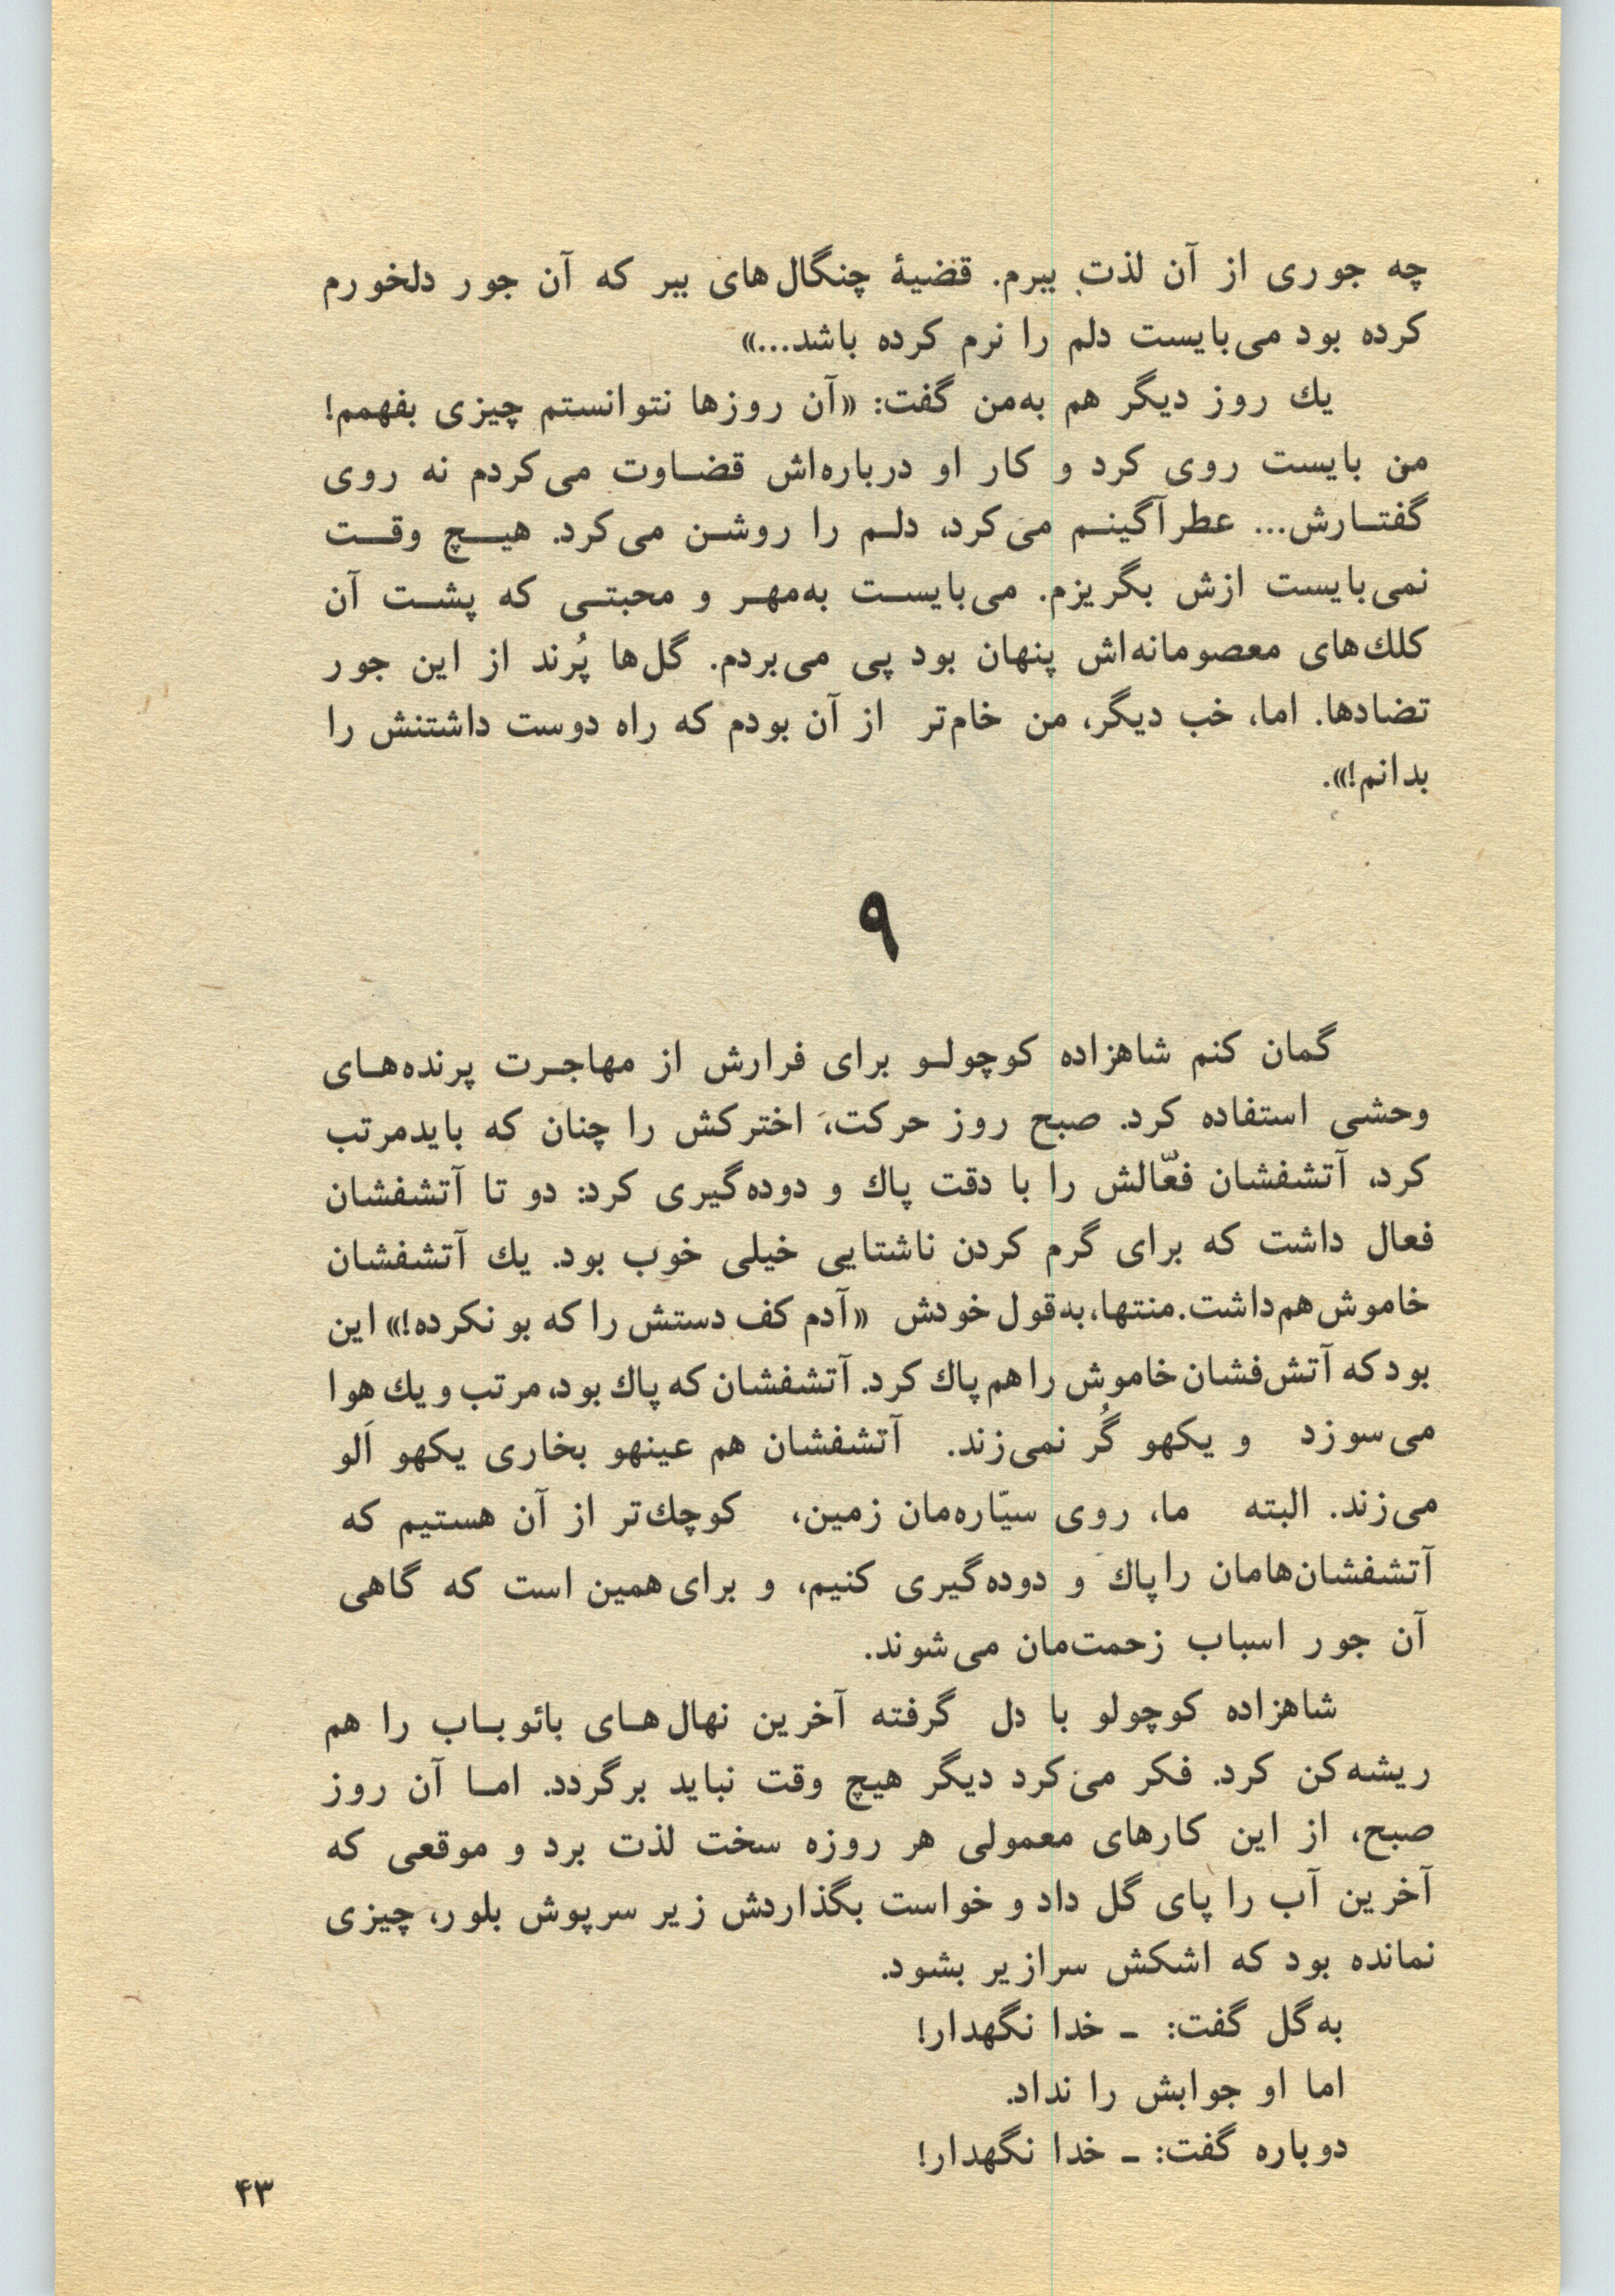 چه جوری از آن لذت ببرم. قضیهٔ چنگال‌های ببر که آن جور دلخورم
کرده بود می‌بایست دلم را نرم کرده باشد...»
یك روز دیگر هم به‌من گفت: «آن روزها نتوانستم چیزی بفهمم!
من بایست روی کرد و کار او درباره‌اش قضاوت می‌کردم نه روی
گفتارش... عطرآگینم می‌کرد، دلم را روشن می‌کرد. هیچ وقت
نمی‌بایست ازش بگریزم. می‌بایست به‌مهر و محبتی که پشت آن
کلك‌های معصومانه‌اش پنهان بود پی می‌بردم. گل‌ها پُرند از این جور
تضادها. اما، خب دیگر، من خام‌تر از آن بودم که راه دوست داشتنش را
بدانم!».
۹
گمان کنم شاهزاده کوچولو برای فرارش از مهاجرت پرنده‌های
وحشی استفاده کرد. صبح روز حرکت، اخترکش را چنان که بایدمرتب
کرد، آتشفشان فعّالش را با دقت پاك و دوده‌گیری کرد: دو تا آتشفشان
فعال داشت که برای گرم کردن ناشتایی خیلی خوب بود. یك آتشفشان
خاموش هم‌داشت. منتها، به‌قول خودش «آدم کف دستش را که بو نکرده!» این
بود که آتش‌فشان خاموش را هم پاك کرد. آتشفشان که پاك بود، مرتب و یك هوا
می‌سوزد و یکهو گُر نمی‌زند. آتشفشان هم عینهو بخاری یکهو اَلو
می‌زند. البته ما، روی سیّاره‌مان زمین، کوچك‌تر از آن هستیم که
آتشفشان‌هامان را پاك و دوده‌گیری کنیم، و برای همین است که گاهی
آن جور اسباب زحمت‌مان می‌شوند.
شاهزاده کوچولو با دل گرفته آخرین نهال‌های بائوباب را هم
ریشه‌کن کرد. فکر می‌کرد دیگر هیچ وقت نباید برگردد. اما آن روز
صبح، از این کارهای معمولی هر روزه سخت لذت برد و موقعی که
آخرین آب را پای گل داد و خواست بگذاردش زیر سرپوش بلور، چیزی
نمانده بود که اشکش سرازیر بشود.
به‌گل گفت: ـ خدا نگهدار!
اما او جوابش را نداد.
دوباره گفت: ـ خدا نگهدار!
۴۳